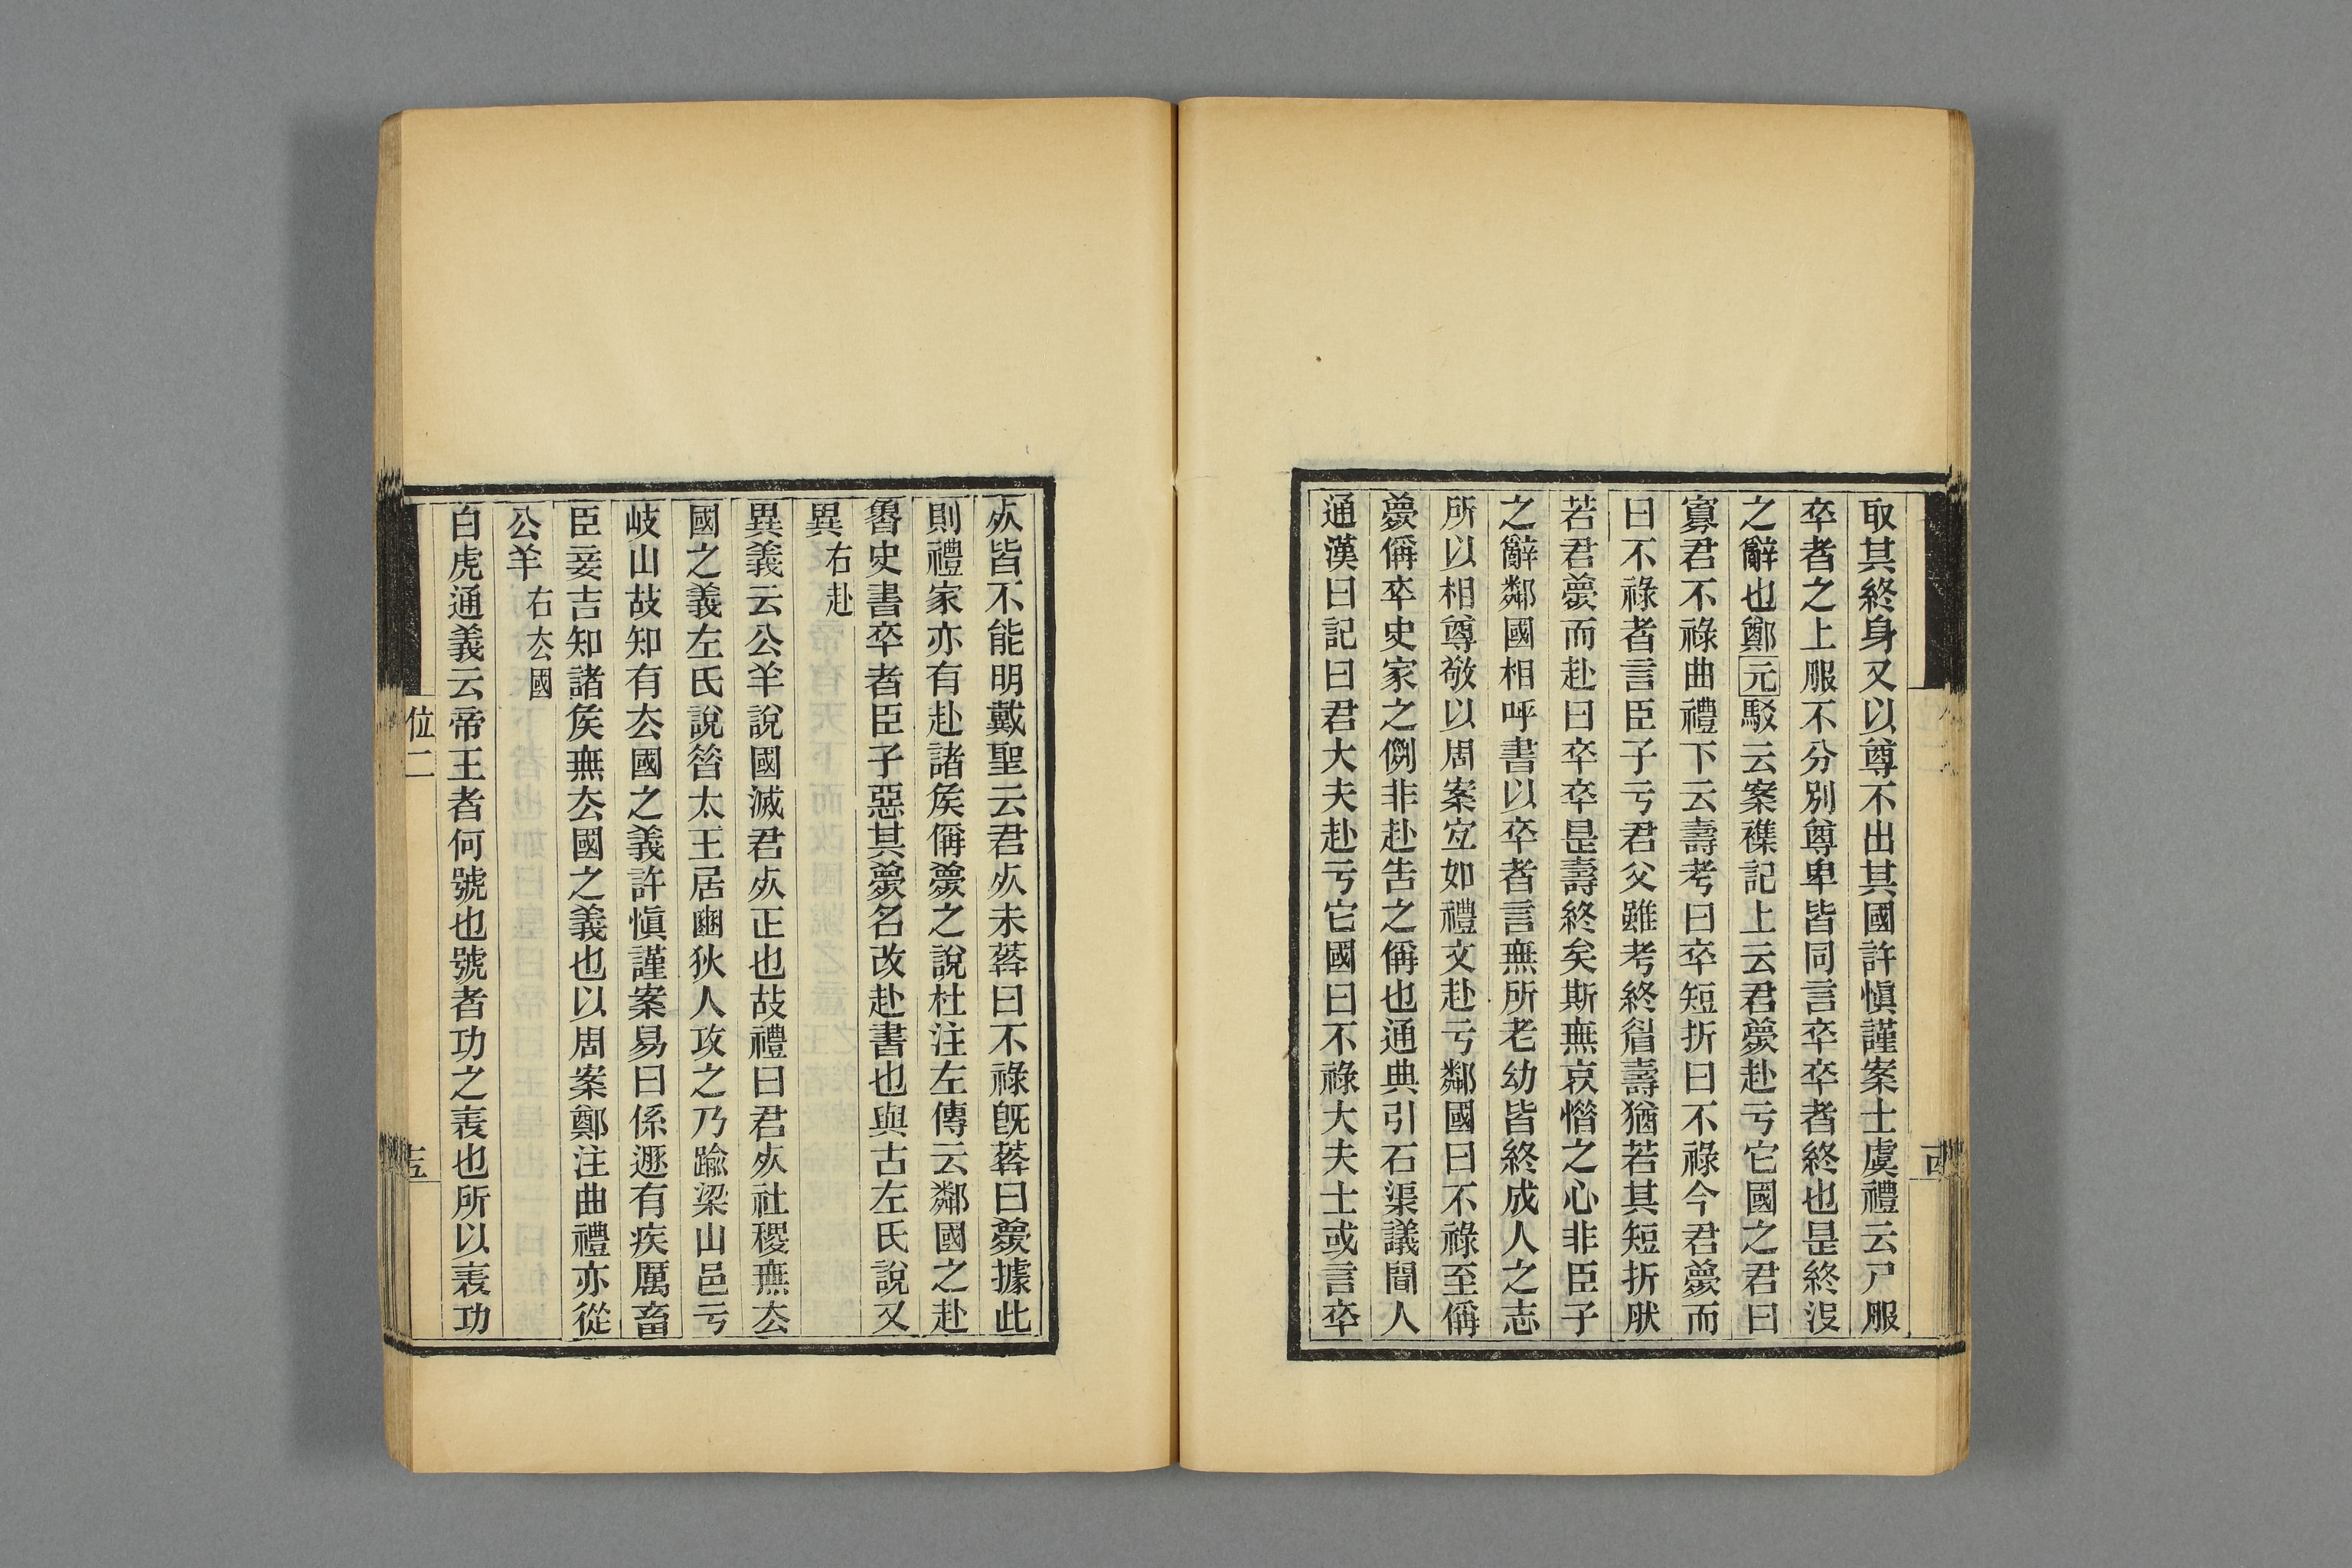 取其終身又以尊不出其國許愼謹案士虞禮云尸服
卒者之上服不分別尊卑皆同言卒卒者終也是終沒
之辭也鄭元駁云案襍記上云君薨赴亏它國之君曰
寡君不祿曲禮下云壽考曰卒短折曰不祿今君薨而
曰不祿者言臣子亏君父雖考終眉壽猶若其短折肰
若君薨而赴曰卒卒是壽終矣斯無哀憯之心非臣子
之辭鄰國相呼書以卒者言無所老幼皆終成人之志
所以相尊敬以周案宐如禮文赴亏鄰國曰不祿至偁
薨偁卒史家之例非赴告之偁也通典引石渠議聞人
通漢曰記曰君大夫赴亏它國曰不祿大夫士或言卒
㱙皆不能明戴聖云君㱙未葬曰不祿旣葬曰薨據此
則禮家亦有赴諸矦偁薨之說杜注左傳云鄰國之赴
魯史書卒者臣子惡其薨名改赴書也與古左氏說又
異右赴
異義云公羊說國滅君㱙正也故禮曰君㱙社稷無厺
國之義左氏說昔太王居豳狄人攻之乃踰梁山邑亏
岐山故知有厺國之義許愼謹案易曰係遯有疾厲畜
臣妾吉知諸矦無厺國之義也以周案鄭注曲禮亦從
公羊右厺國
白虎通義云帝王者何號也號者功之表也所以表功
位二